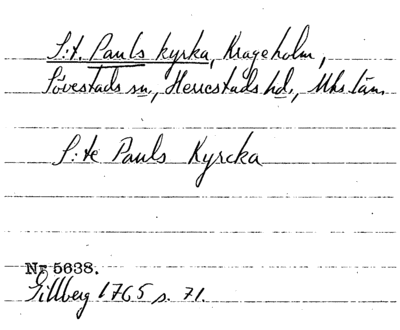 S:t. Pauls kyrka, Krageholm,
Sövestads sn., Herrestads hd., Mhs län.
S:te Pauls Kyrcka
Nr 5638.
Gillberg 1765 s. 71.